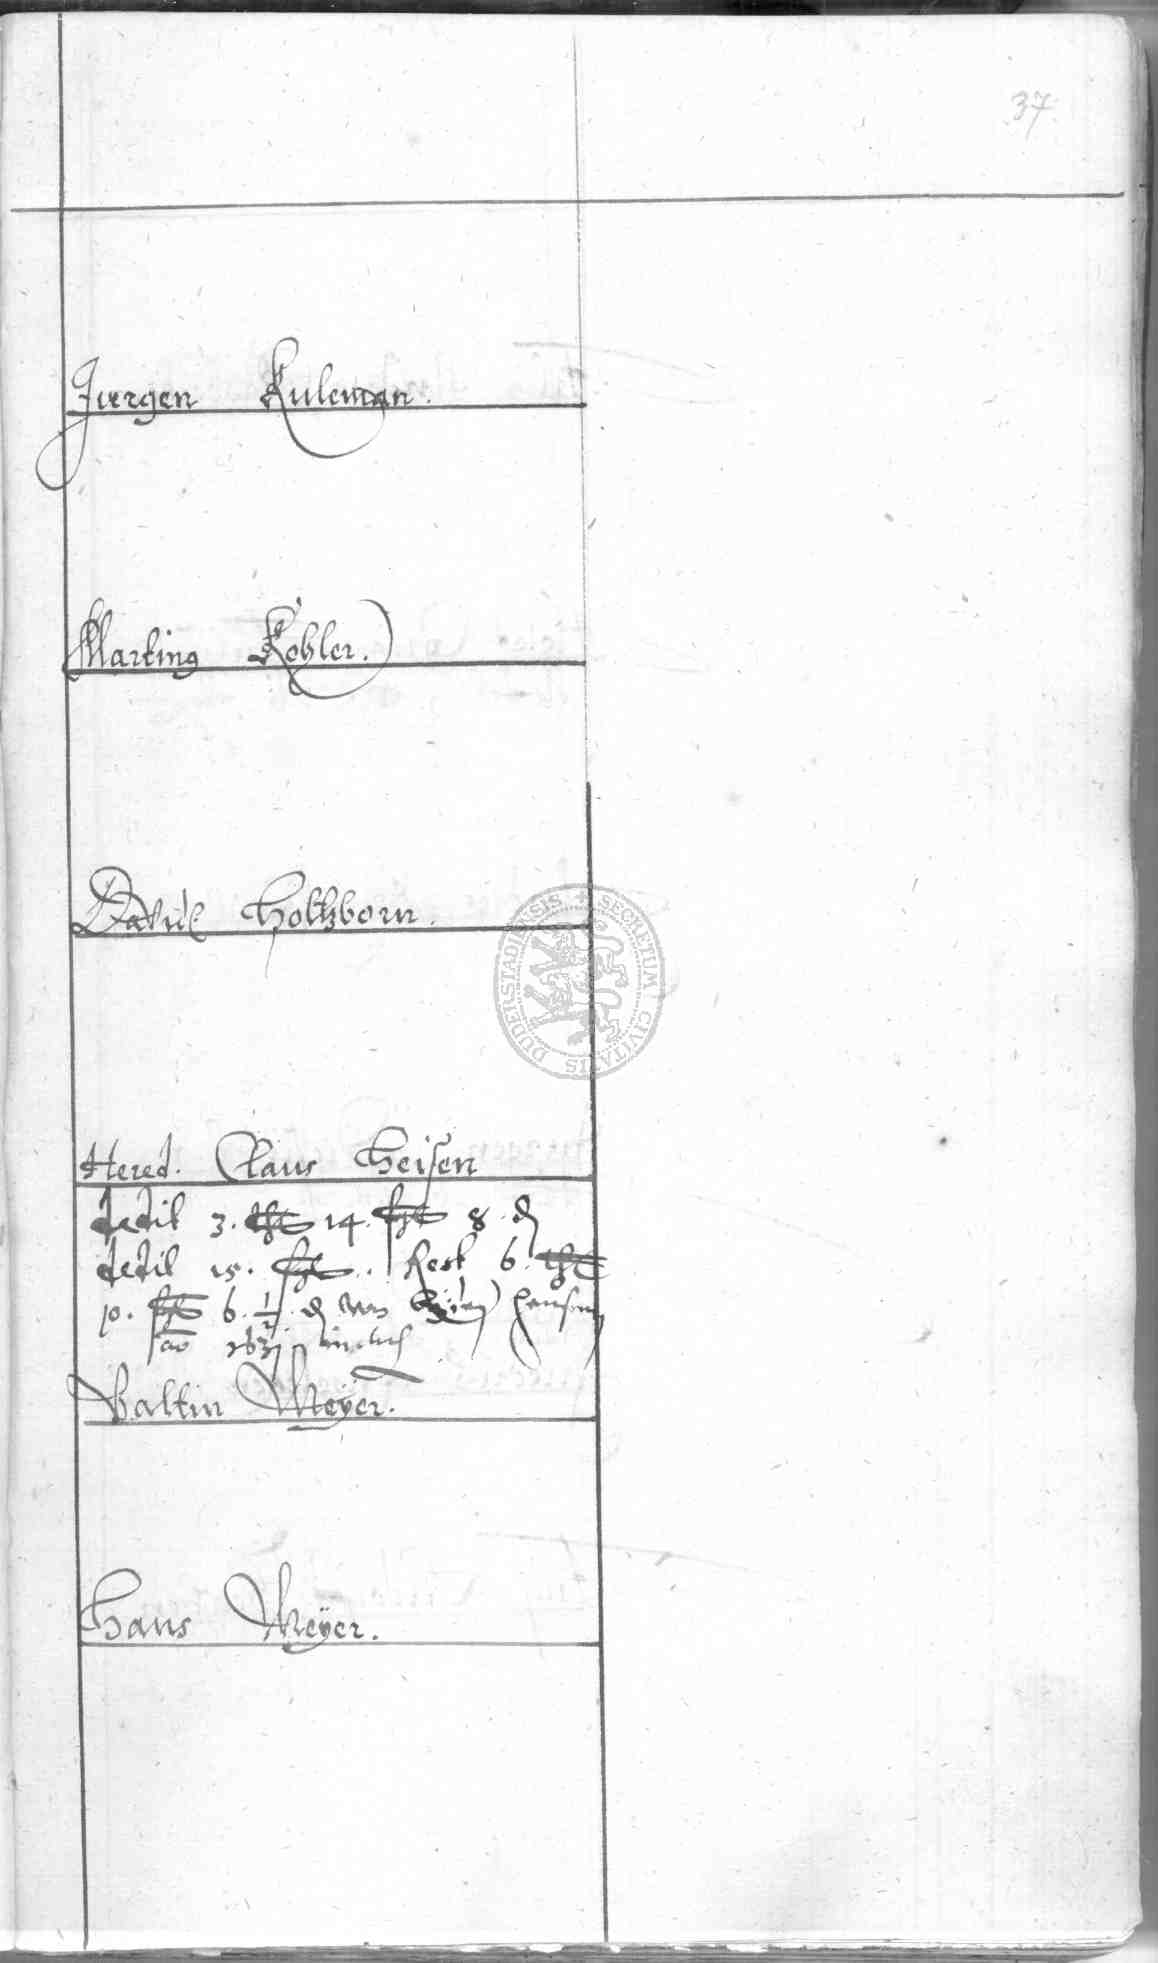 37
Juergen Kuleman.
Marting Kohler.
Davidt Holtzborn.
DUDERSTADIENSIS + SECRETUM CIVITATIS
Hered. Claus Heisen
dedit 3. 14. 8 d
dedit 15. Rest 6.
10. 6. 1/2. d
ao 1631
Valtin Meÿer.
Hans Meÿer.